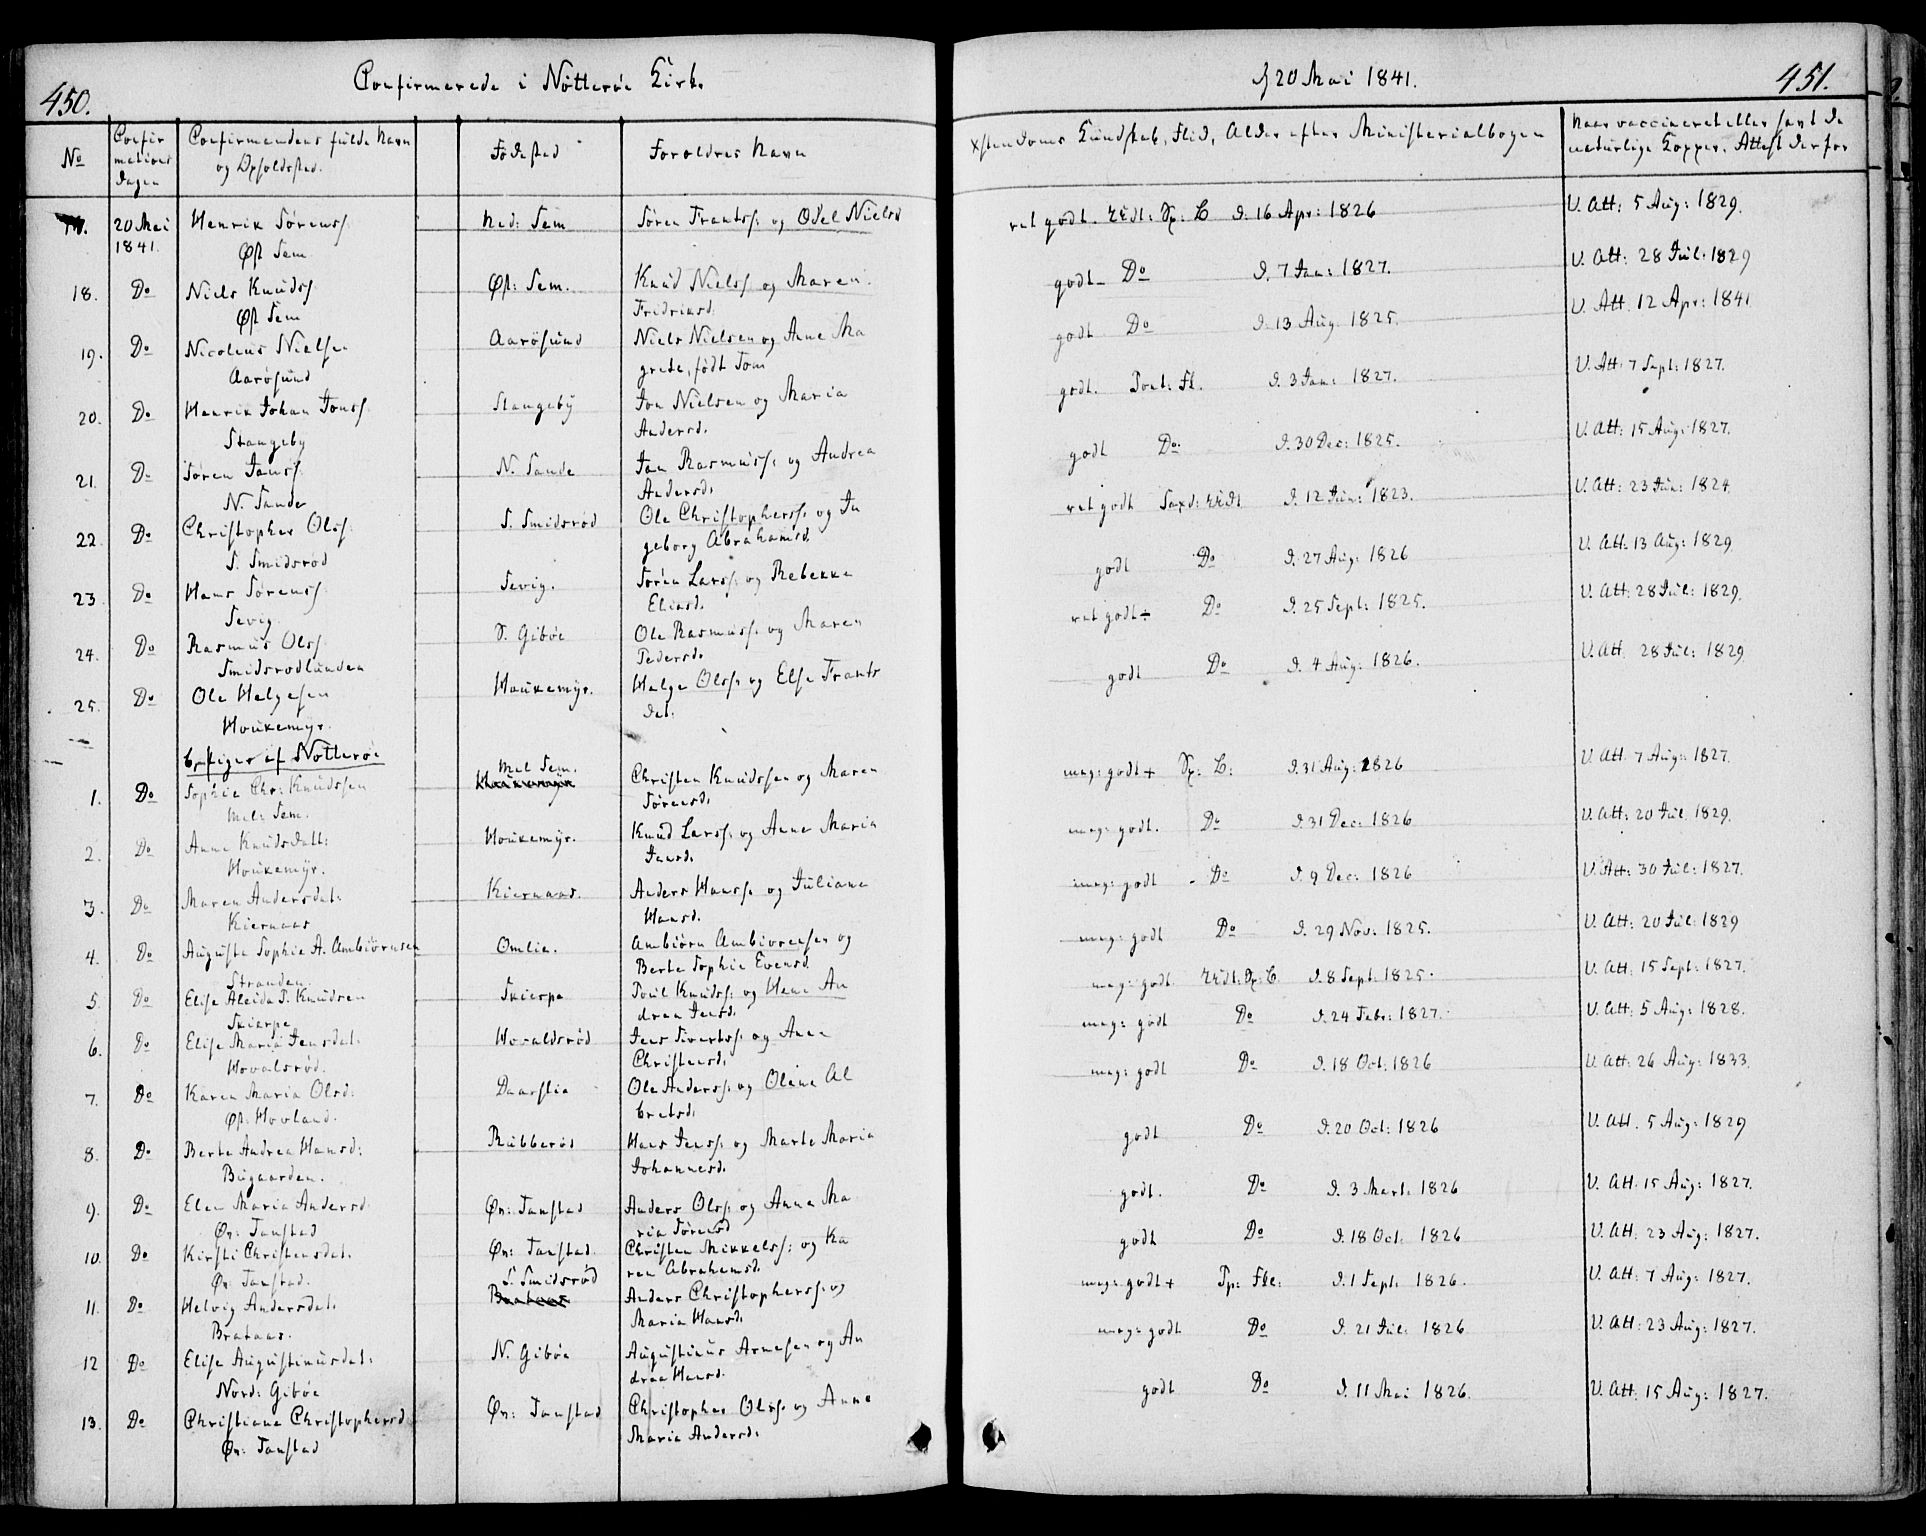 450.
Confirmerede i Nötteröe Kirk.
No
Confirmationes Dagen
Confirmandens fulde Navn og Opholdssted.
Födested
Foreldres Navn
17. 20 Mai 1841. Henrik Sörenss. Ned: Sem Sören Frantss: og Odel Nielsd
Øst Sem
18. Do Niels Knudss Øst: Sem. Knud Nielss og Maren
Øst Sem Fridriksd.
19. Do Nicolaus Nielsen Aarösund Niels Nielsen og Anne Ma
Aarösund grete, födt Tom
20. Do Henrik Johan Jonss. Stangeby Jon Nielsen og Maria
Stangeby Andersd.
21. Do Sören Janss. N. Sande Jan Rasmuss: og Andrea
N. Sande Andersd.
22. Do Christopher Olss. S. Smidsröd Ole Christopherss. og In
S. Smidsröd geborg Abrahamsd.
23. Do Hans Sörenss. Sevig. Sören Larss: og Rebekka
Sevig. Eliasd.
24. Do Rasmus Olss. S. Giböe Ole Rasmuss. og Maren
Smidsrodlunden Pedersd.
25. Do Ole Helgesen Houkemyr. Helge Olss. og Else Frants
Houkemyr. dat:
b, piger af Nötteröe
1. Do Sophie Chr: Knudssen Mel Sem. Christen Knudssen og Maren
Mel: Sem. Sörensd.
2. Do Anne Knudsdatt: Houkemyr. Knud Larss: og Anne Maria
Houkemyr. Jensd.
3. Do Maren Andersdat: Kiernaas. Anders Hanss: og Juliane
Kiernaas Hansd.
4. Do Auguste Sophie A. Ambiörnsen Omlie. Ambiörn Ambiörnsen og
Stranden. Berte Sophie Evensd.
5. Do Elise Aleida P. Knudsen Skierpe Poul Knudss: og Helene An
Skierpe drea Jensd.
6. Do Elise Maria Jensdat. Hovaldsröd Jens Sivertss. og Anne
Hovalsröd. Christensd.
7. Do Karen Maria Olsd: Daarslia Ole Anderss: og Olene Al
Øst: Hovland. bretsd.
8. Do Berte Andrea Hansd: Rubberös Hans Jenss: og Marte Maria
Bugaarden. Johannesd.
9. Do Elen Maria Andersd. Øv: Tanstad Anders Olss. og Anne Ma
Øv: Tanstad ria Sörensd
10. Do Kirsti Christensdat. Øv: Tanstad Christen Mikkelss: og Ka
Øv Tanstad. ren Abrahamsd.
11. Do Helvig Andersdat. S. Smidsröd Anders Christopherss. og
Brataas. Maria Hansd.
12 Do Elise Augustinusdat: N. Giböe Augustinus Arnesen og An
Nord: Giböe drea Hansd.
13. Do Christiane Christophersd Øv: Tanstad Christopher Olss. og Anne
Øv: Tanstad Maria Andersd.
d 20 Mai 1841.
451.
Xstendoms Kundskab, Flid, Alder efter Ministerialbogen
Naar vaccineret eller havt de naturlige Kopper. Attest derfor
ret godt. D. 16 Apr: 1826 V. Att: 5 Aug: 1829.
godt Do D. 7 Jan: 1827. V. Att: 28 Jul: 1829
godt Do D. 13 Aug. 1825. V. Att. 12 Apr: 1841
godt. Pont: Fl. D. 3 Jan: 1827. V. Att: 7 Sept: 1827.
godt Do D. 30 Dec: 1825. V. Att: 15 Aug: 1827.
ret godt D. 12 Jun: 1823. V. Att: 23 Jun: 1824.
godt Do D. 27 Aug: 1826 V. Att: 13 Aug: 1829.
ret godt ÷ Do D. 25 Sept: 1825. V. Att: 28 Jul: 1829.
godt Do D. 4 Aug: 1826. V. Att. 28 Jul: 1829
meg: godt + D. 31 Aug: 1826 V. Att. 7 Aug: 1827.
meg: godt. Do D. 31 Dec: 1826 V. Att: 20 Jul. 1829.
meg: godt Do D. 9 Dec: 1826 V. Att: 30 Jul: 1827.
meg: godt Do D. 29 Nov: 1825. V. Att: 20 Jul: 1829
meg: godt D. 8 Sept: 1825. V. Att: 15 Sept: 1827.
meg: godt Do D. 24 Febr: 1827. V. Att: 5 Aug: 1828.
meg: godt Do D. 18 Oct. 1826 V. Att: 26 Aug: 1833.
godt Do D. 20 Oct: 1826 V. Att. 5 Aug: 1829
godt. Do D. 3 Mart: 1826 V. Att. 15 Aug: 1827.
godt Do D. 18 Oct: 1826 V. Att. 23 Aug: 1827.
meg: godt + D. 1 Sept: 1826. V. Att: 7 Aug: 1827.
meg: godt Do D. 21 Jul: 1826 V. Att: 23 Aug: 1827.
godt Do D. 11 Mai 1826. V. Att. 15 Aug: 1827.